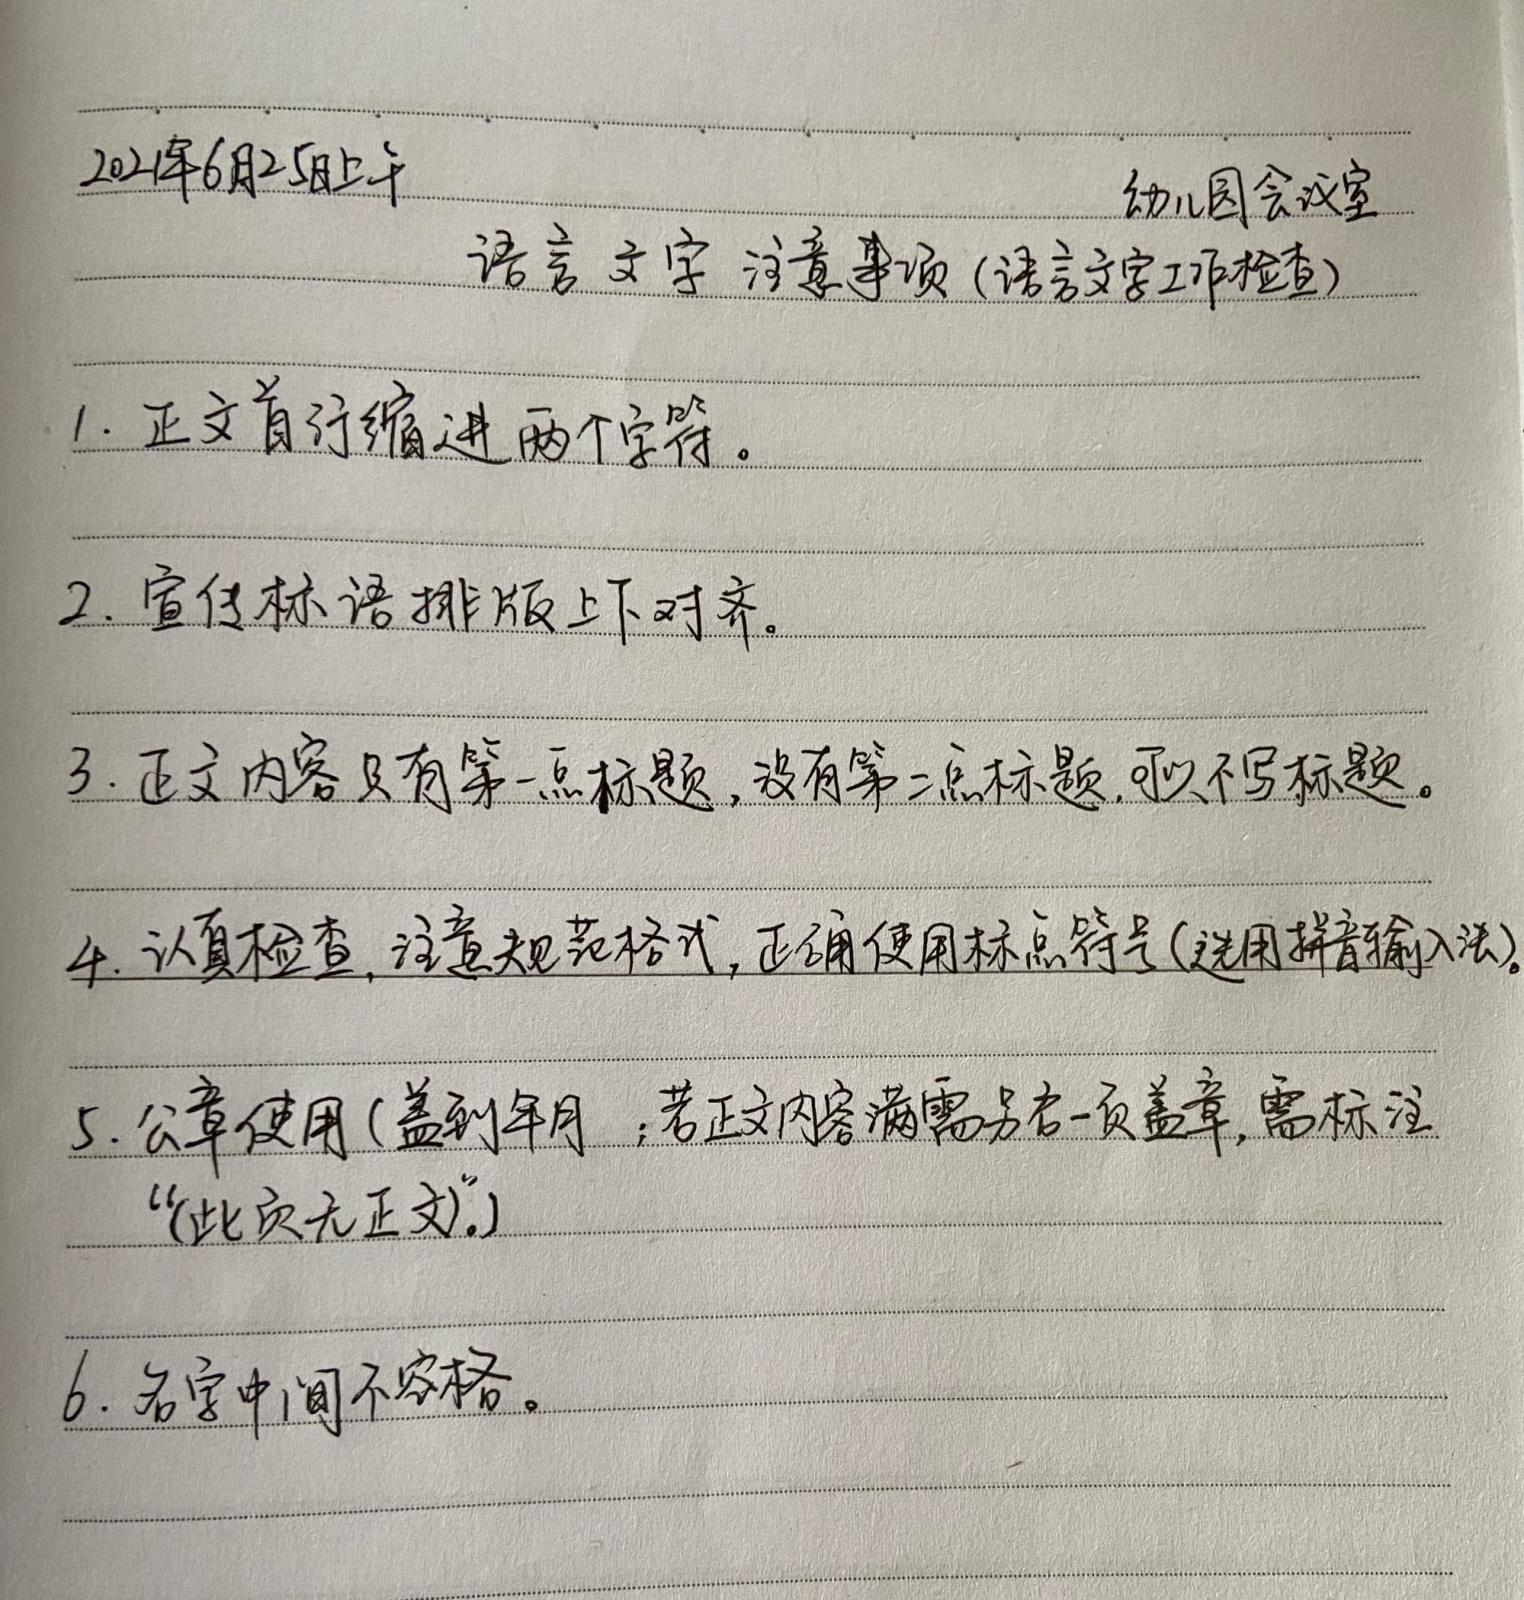 2021年6月25日上午
幼儿园会议室
语言文字注意事项(语言文字工作检查)
1.正文首行缩进两个字符。
2.宣传标语排版上下对齐。
3.正文内容只有第一点标题,没有第二点标题,可以不写标题。
4.认真检查,注意规范格式,正确使用标点符号(选用拼音输入法)。
5.公章使用(盖到年月 ;若正文内容满需另右一页盖章,需标注
“(此页无正文)”。)
6.名字中间不容格。